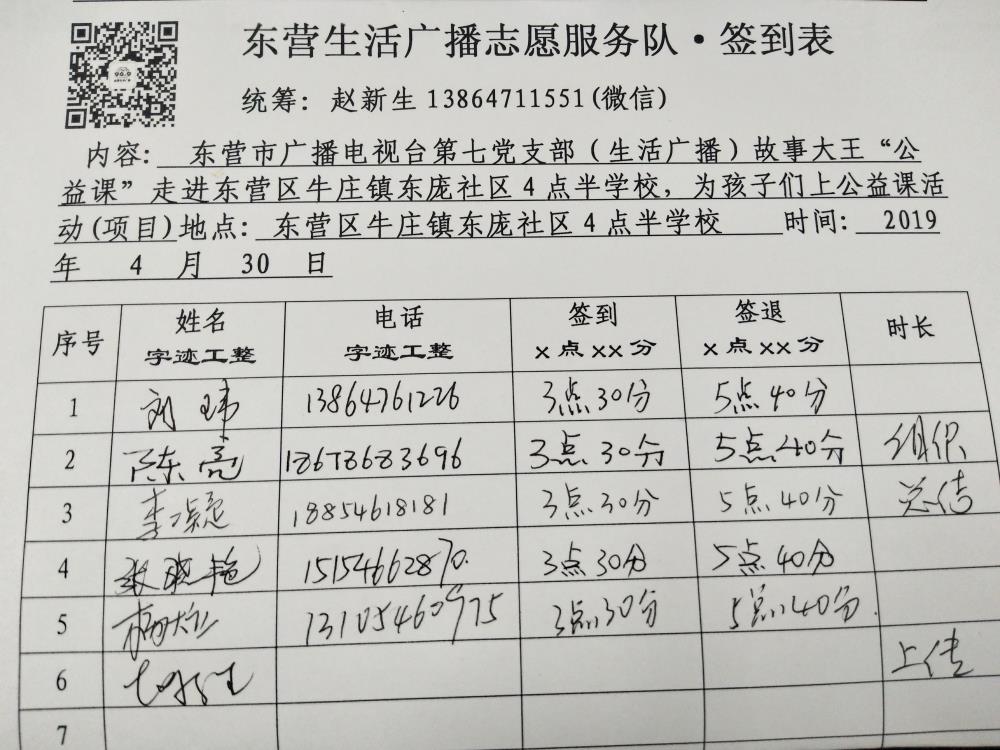 东营生活广播志愿服务队·签到表
统筹：赵新生 13864711551(微信)
内容：东营市广播电视台第七党支部（生活广播）故事大王“公
益课”走进东营区牛庄镇东庞社区4点半学校，为孩子们上公益课活
动(项目)地点：东营区牛庄镇东庞社区4点半学校 时间：2019
年 4 月 30 日
序号 姓名 电话 签到 签退 时长
字迹工整 字迹工整 x点xx分 x点xx分
1 刘玮 13864761226 3点30分 5点40分
2 陈亮 18678683696 3点30分 5点40分 组织
3 李凝 18854618181 3点30分 5点40分 总结
4 张晓艳 15154662870 3点30分 5点40分
5 13105460975 3点30分 5点40分
6 上传
7